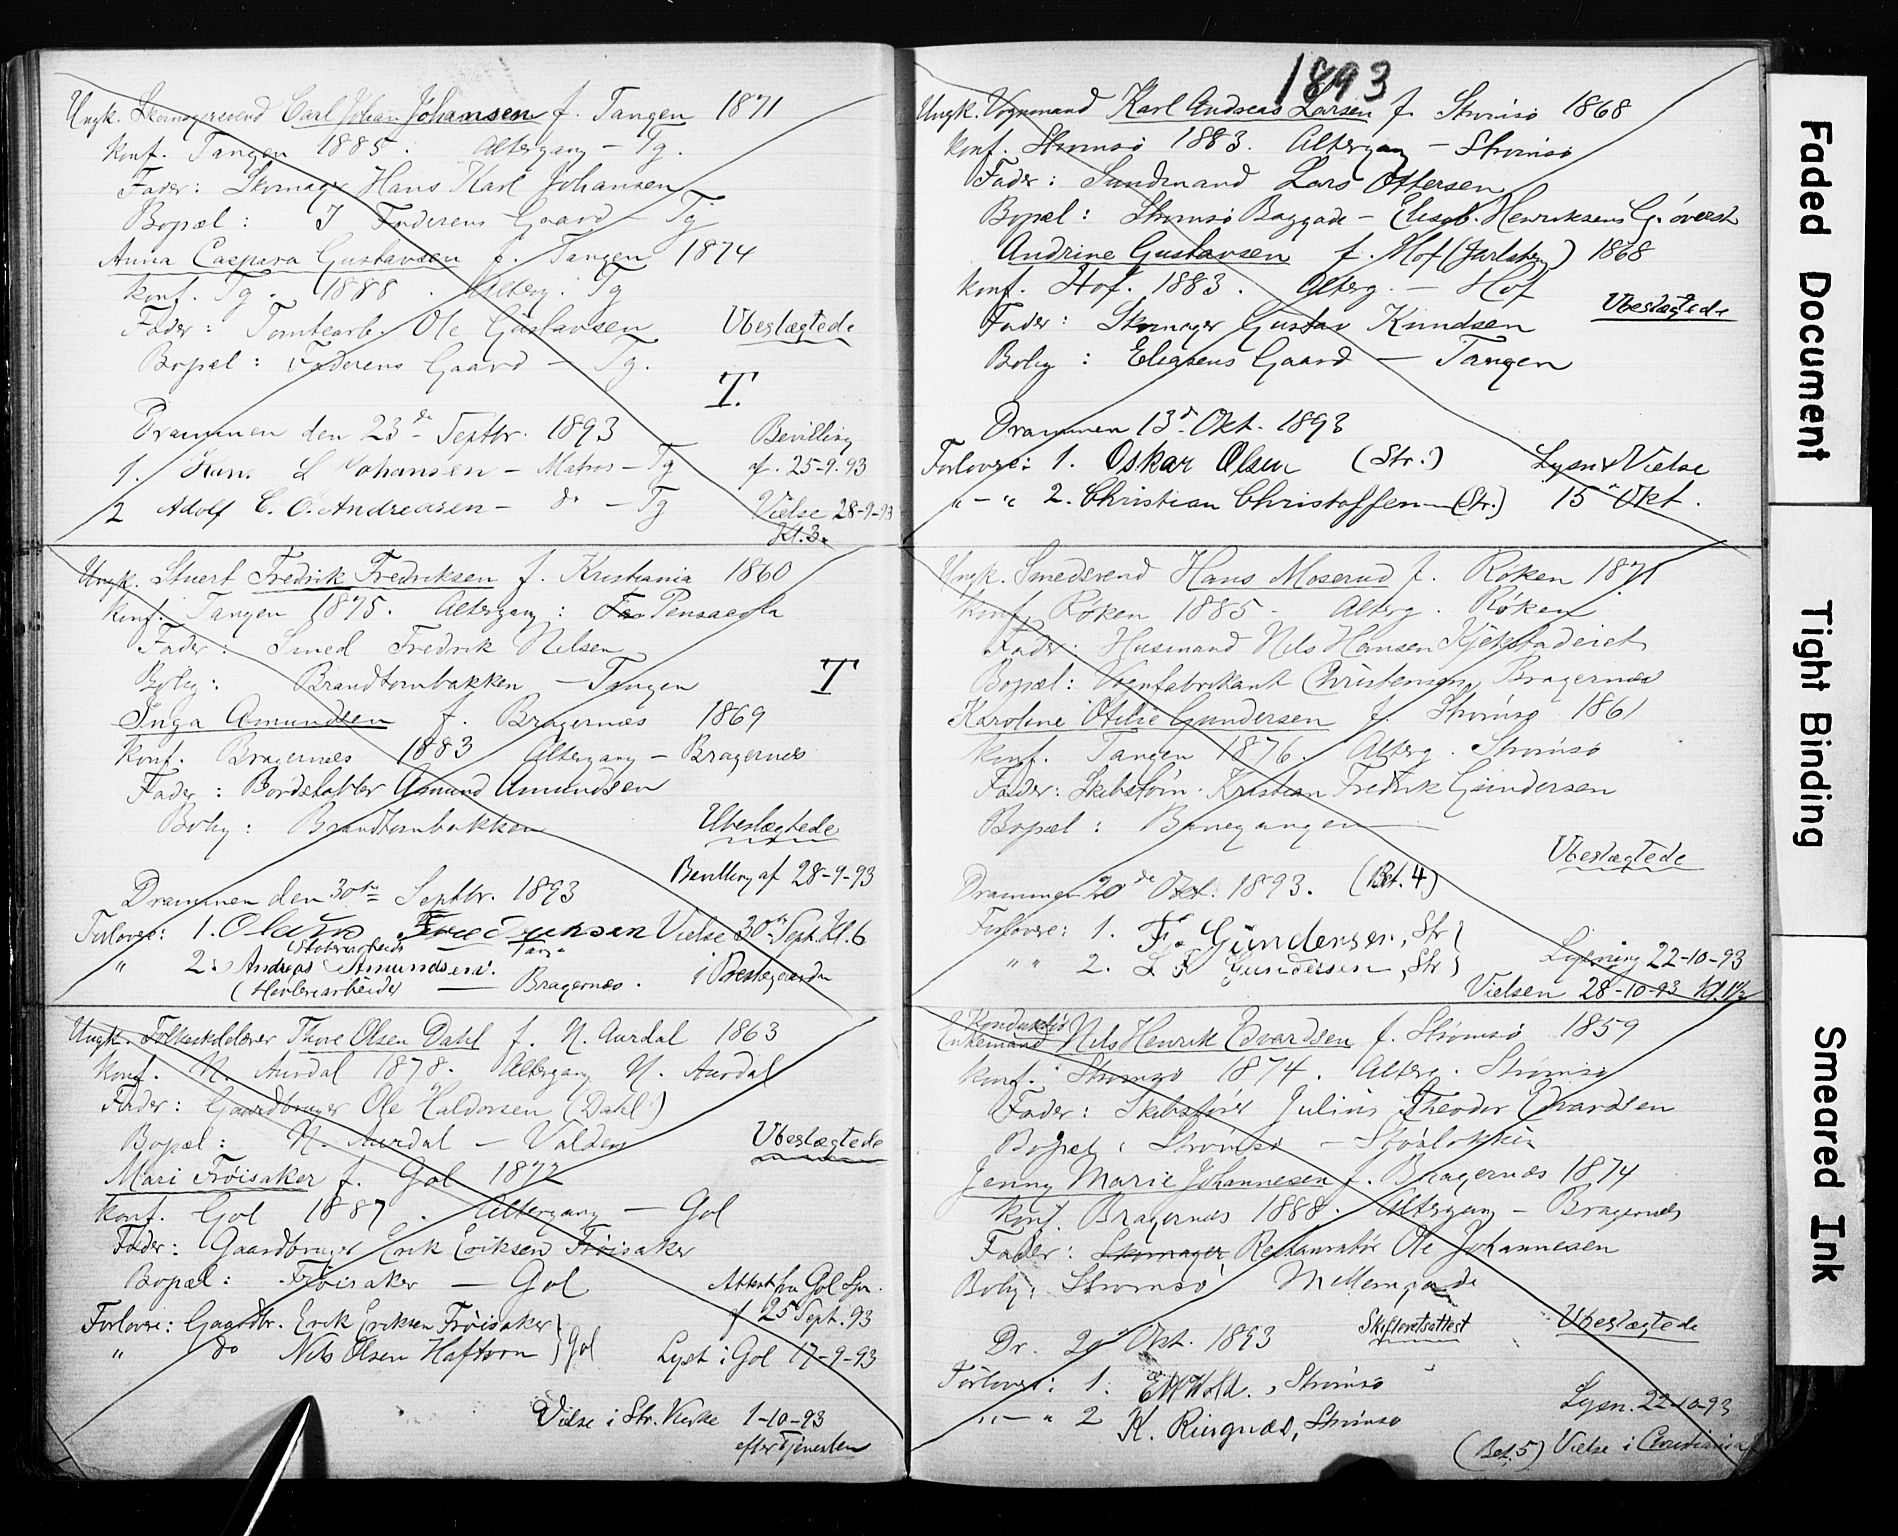 Ungk. Skomagersvend Carl Johan Johansen f. Tangen 1871
Konf. Tangen 1885. Altergang – Tg.
Fader: Skomager Hans Karl Johansen
Bopæl: I Faderens Gaard – Tg
Anna Caspara Gustavsen f. Tangen 1874
Konf. Tg. 1888. Alterg. Tg
Fader: Tomtearb. Ole Gustavsen
Ubeslægtede
Bopæl: Faderens Gaard – Tg.
T.
Drammen den 23de Septbr. 1893
Bevilling
1. Johansen – Matros – Tg
af. 25-9-93
2 Adolf C. O. Andreasen – do – Tg
Vielse 28-9-93
Kl. 3.
Ungk. Stuert Fredrik Fredriksen f. Kristiania 1860
Konf. Tangen 1875. Altergang: Pensacola
Fader: Smed Fredrik Nilsen
Bolig: Brandtornbakken – Tangen
T
Inga Amundsen f. Bragernæs 1869
Konf. Bragernæs 1883 Altergang – Bragernæs
Fader: Bordstabler Amund Amundsen
Bolig: Brandtornbakken
Ubeslægtede
Bevilling af 28-9-93
Drammen den 30te Septbr. 1893
Forlovere: 1. Fredriksen Vielse 30te Sept. Kl. 6
" 2. Andreas Amundsen.
i Præstegaarden
(Høvleriarbeider — Bragernæs.
Ungk. Folkeskolelærer Thore Olsen Dahl f. N. Aurdal 1863
Konf. N. Aurdal 1878. Altergang N. Aurdal
Fader: Gaardbruger Ole Haldorsen (Dahl)
Bopæl: N. Aurdal – Valders
Ubeslægtede
Mari Frøisaker f. Gol 1872
Konf. Gol 1887. Altergang – Gol
Fader: Gaardbruger Erik Eriksen Frøisaker
Bopæl: Frøisaker — Gol
Attest fra Gol Spr.
af 25 Sept. 93
Forlovere: Gaardbr. Erik Eriksen Frøisaker
" do Nils Olsen Haftorn } Gol
Lyst i Gol 17-9-93
Vielse i Str. Kirke 1-10-93
efter Tjenesten
1893
Ungk. Vognmand Karl Andreas Larsen f. Strømsø 1868
Konf. Strømsø 1883. Altergang – Strømsø
Fader: Sandmand Lars Ottersen
Bopæl: Strømsø Baggade – Elisab. Henriksens G. øverst
Andrine Gustavsen f. Hof (Jarlsberg) 1868
Konf. Hof. 1883. Alterg. – Hof
Ubeslægtede
Fader: Skomager Gustav Knudsen
Bolig: Eliasens Gaard – Tangen
Drammen 13de Okt. 1893
Forlovere: 1. Oskar Olsen (Str.)
Lysn. & Vielse
" – " 2. Christian Christoffersen (Str.)
15de Okt.
Ungk. Smedsvend Hans Moserud f. Røken 1871
Konf. Røken 1885 – Alterg. Røken
Fader: Husmand Nils Hansen Kjekstadeiet
Bopæl: Vognfabrikant Christensen, Bragernæs
Karoline Otilie Gundersen f. Strømsø 1861
Konf. Tangen 1876. Alterg. Strømsø
Fader: Skibstøm. Kristian Fredrik Gundersen
Bopæl: Banegangen
Ubeslægtede
Drammen 20de Okt. 1893. (Bet. 4)
Forlovere: 1. F. Gundersen, Str
" " 2. Gundersen, Str
Lysning 22-10-93
Vielsen 28-10-93
Konduktør
Enkemand Nils Henrik Edvardsen f. Strømsø 1859
Konf. Strømsø 1874. Alterg. Strømsø
Fader: Skibsfører Julius Theodor Edvardsen
Bopæl: Strømsø – Svaløkken
Jenny Marie Johannesen f. Bragernæs 1874
Konf. Bragernæs 1888. Altergang – Bragernæs
Fader: Skomager Restauratør Ole Johannesen
Bolig: Strømsø Mellemgade
Skifteretsattest
Ubeslægtede
Dr. 20 Okt. 1893
Forlovere: 1. Hold., Strømsø
Lysn. 22-10-93
" – " 2 K. Ringnæs, Strømsø
(Bet. 5) Vielse i Christiania
Faded Document
Tight Binding
Smeared Ink